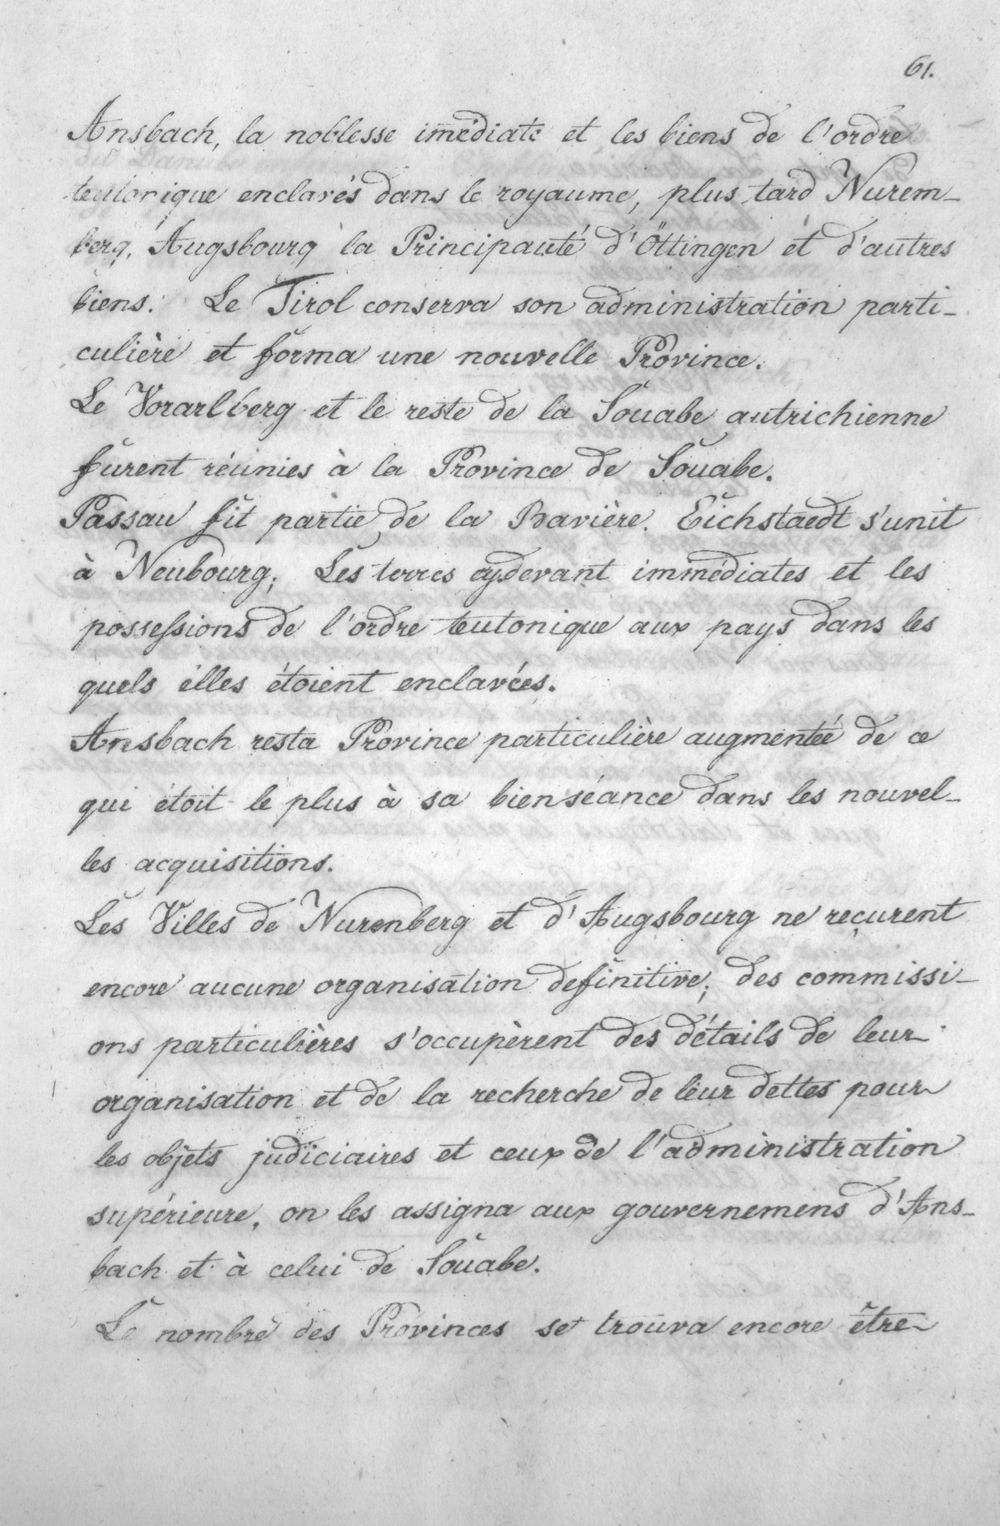 61.
Ansbach, la noblesse imédiate et les biens de l'ordre
teutonique enclavés dans le royaume, plus tard Nurem-
berg, Augsbourg la Principauté d'Öttingen et d'autres
biens. Le Tirol conserva son administration parti-
culière et forma une nouvelle Province.
Le Vorarlberg et le reste de la Souabe autrichienne
furent réunies à la Province de Souabe.
Passau fit partie de la Bavière. Eichstaedt s'unit
à Neubourg; Les terres cydevant immédiates et les
possessions de l'ordre teutonique aux pays dans les
quels elles étoient enclavées.
Ansbach resta Province particulière augmentée de ce
qui étoit le plus à sa bienséance dans les nouvel-
les acquisitions.
Les Villes de Nurenberg et d'Augsbourg ne reçurent
encore aucune organisation definitive; des commissi-
ons particulières s'occupèrent des détails de leur
organisation et de la recherche de leur dettes pour
les objets judiciaires et ceux de l'administration
supérieure, on les assigna aux gouvernemens d'Ans-
bach et à celui de Souabe.
Le nombre des Provinces se trouva encore être